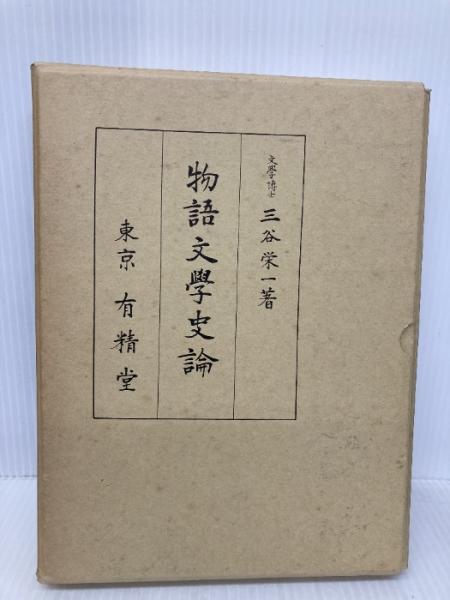 文學博士 三谷栄一著
物語文學史論
東京 有精堂